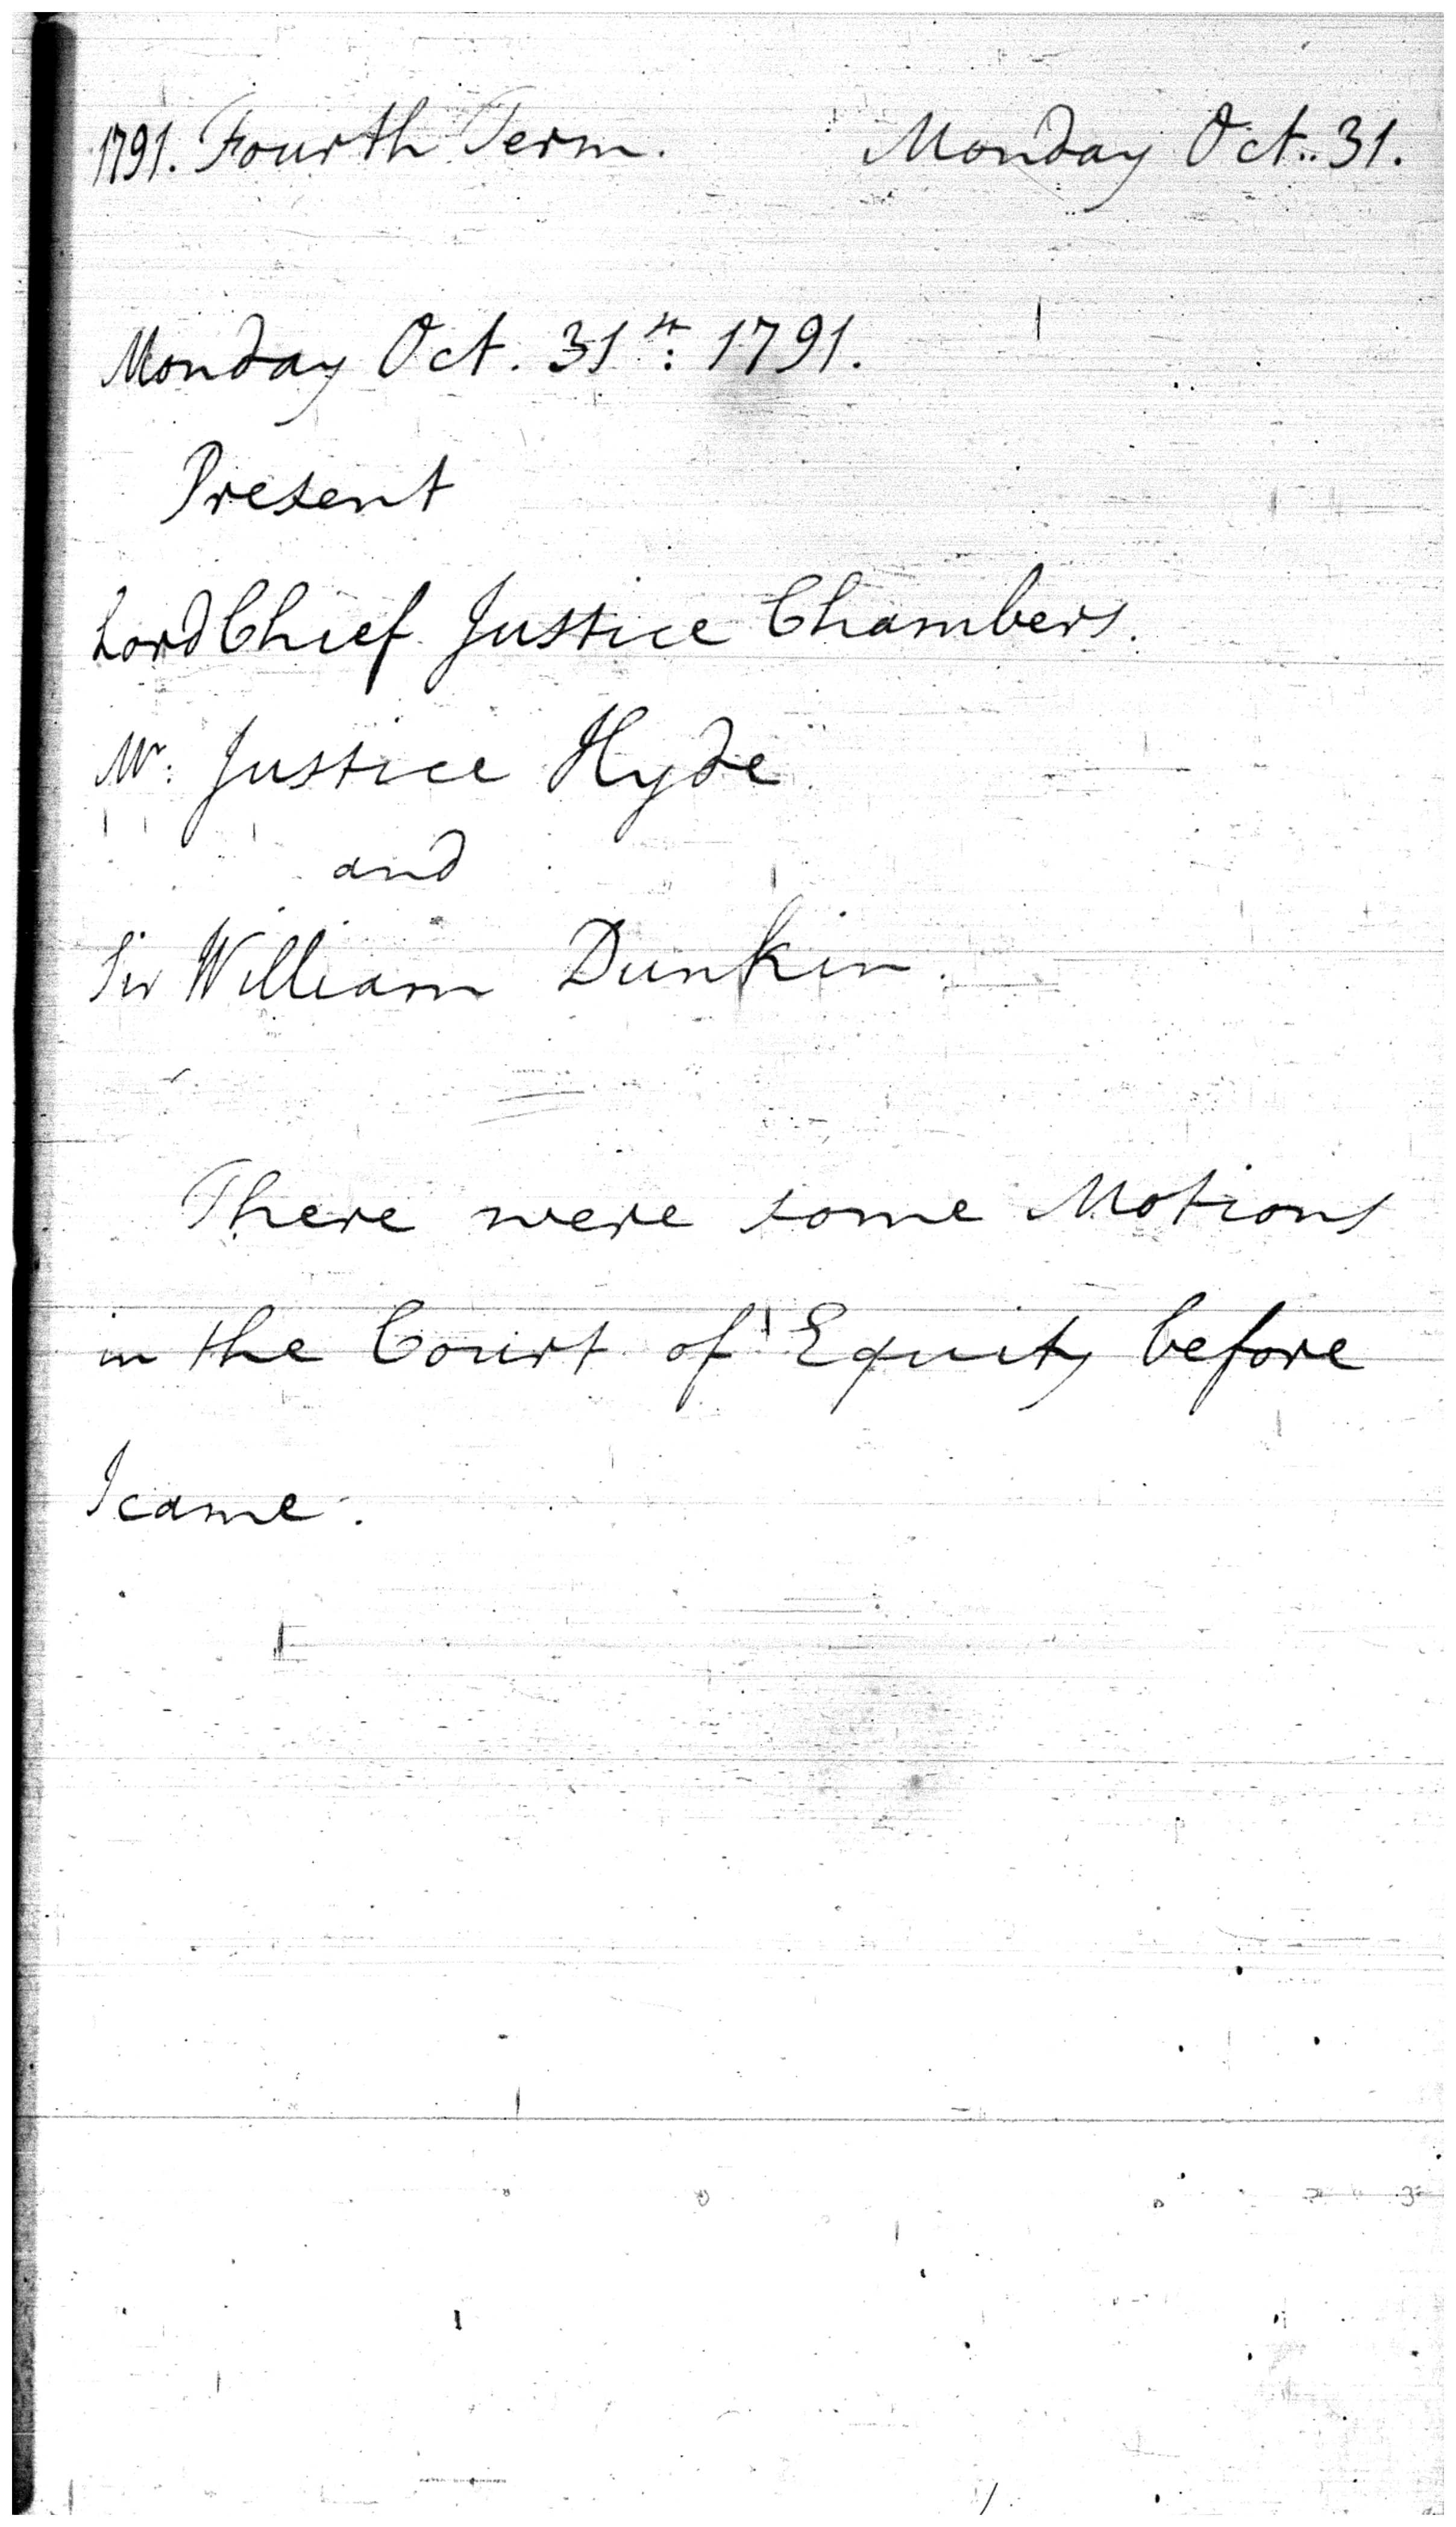 1791. Fourth Term. Monday Oct. 31.
Monday Oct. 31st: 1791.
Present
Lord Chief Justice Chambers.
Mr: Justice Hyde
and
Sir William Dunkin.
There were some Motions
in the Court of Equity before
I came.